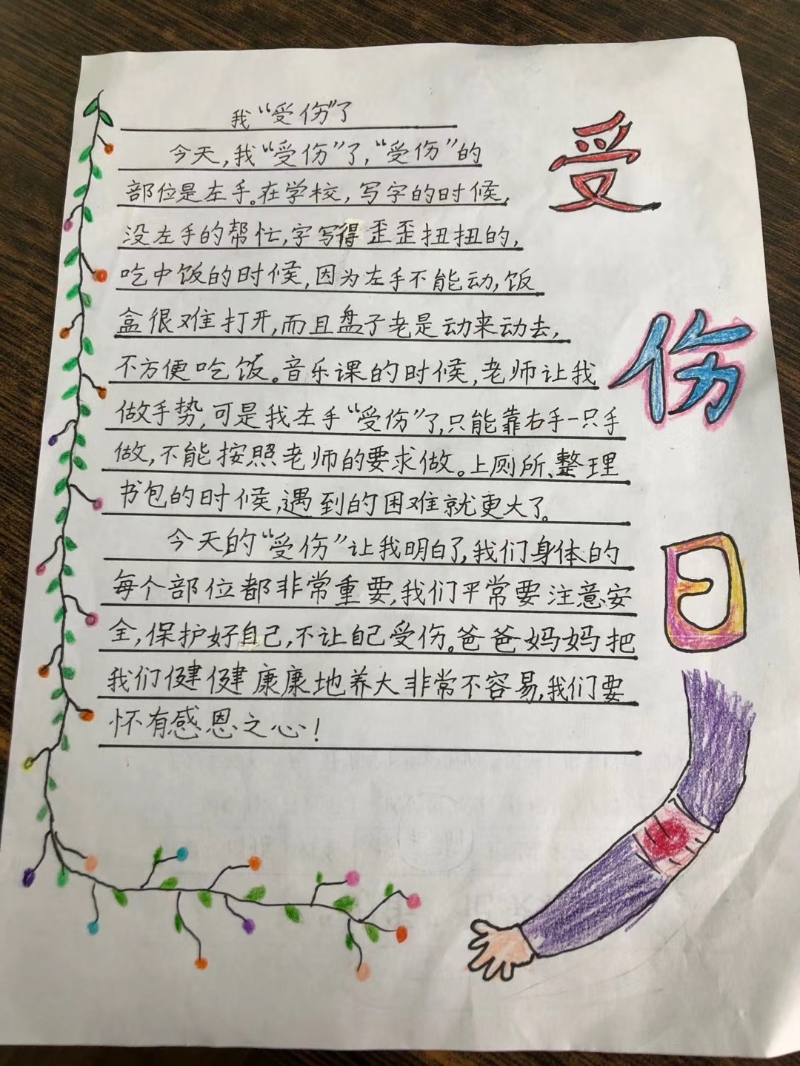 我“受伤”了
今天,我“受伤”了,“受伤”的
部位是左手。在学校,写字的时候,
没左手的帮忙,字写得歪歪扭扭的,
吃中饭的时候,因为左手不能动,饭
盒很难打开,而且盘子老是动来动去,
不方便吃饭。音乐课的时候,老师让我
做手势,可是我左手“受伤”了,只能靠右手一只手
做,不能按照老师的要求做。上厕所、整理
书包的时候,遇到的困难就更大了。
今天的“受伤”让我明白了,我们身体的
每个部位都非常重要,我们平常要注意安
全,保护好自己,不让自己受伤。爸爸妈妈把
我们健健康康地养大非常不容易,我们要
怀有感恩之心!
受
伤
日